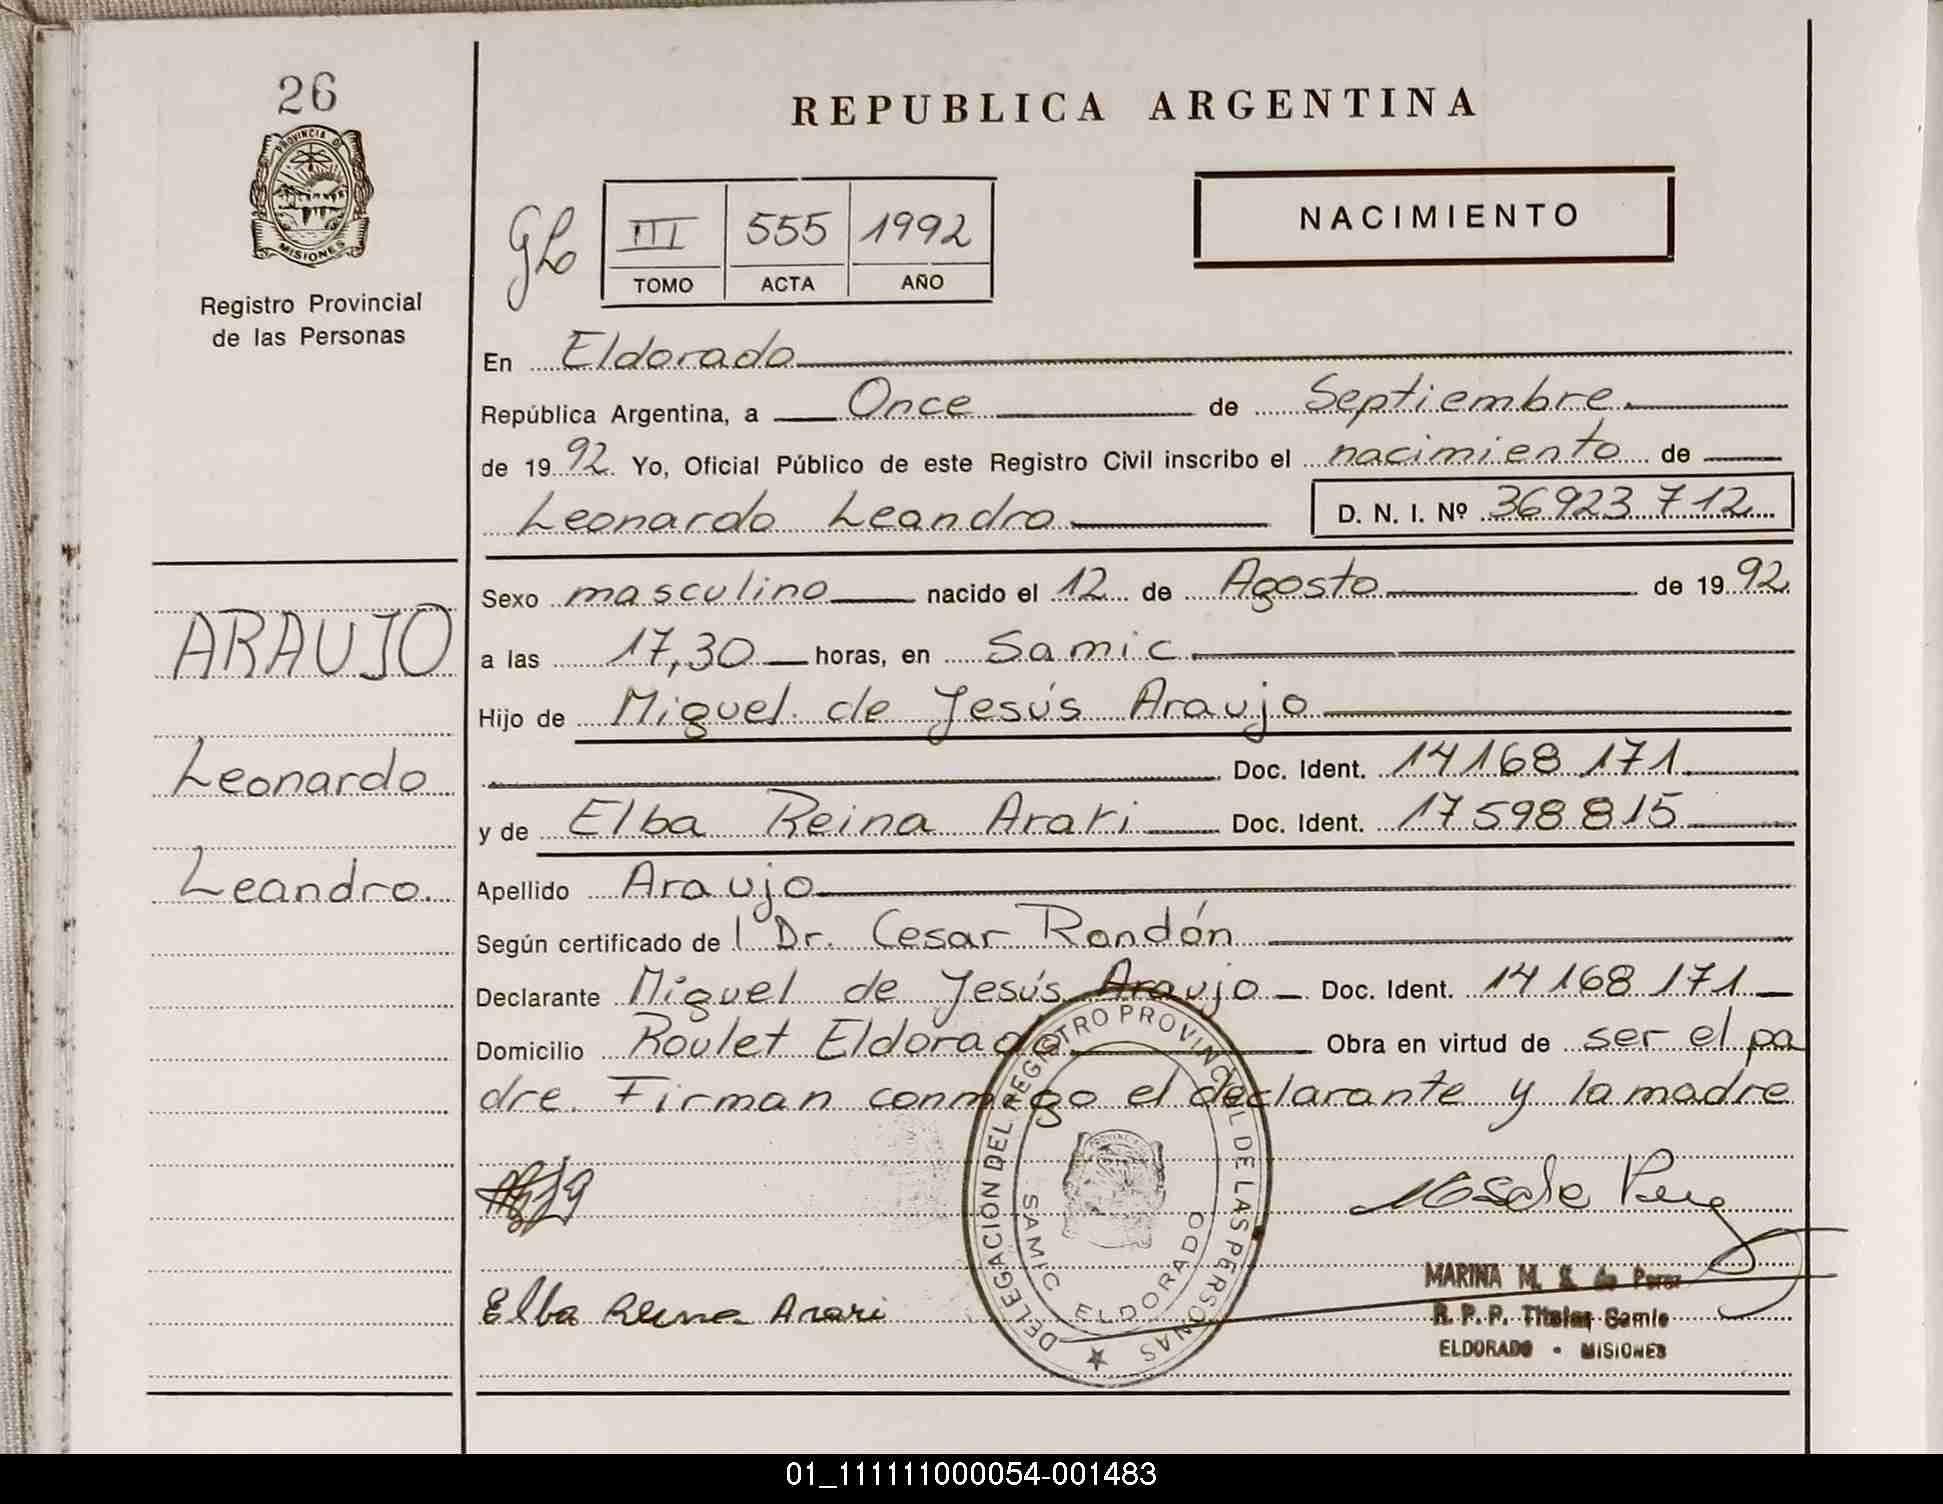 26
PROVINCIA DE
MISIONES
Registro Provincial
de las Personas
ARAUJO
Leonardo
Leandro.
REPUBLICA ARGENTINA
NACIMIENTO
III 555 1992
TOMO ACTA AÑO
En Eldorado
República Argentina, a Once de Septiembre.
de 1992. Yo, Oficial Público de este Registro Civil inscribo el nacimiento de
Leonardo Leandro D. N. I. Nº 36923712
Sexo masculino nacido el 12 de Agosto de 1992
a las 17,30 horas, en Samic
Hijo de Miguel de Jesús Araujo
Doc. Ident. 14168171
y de Elba Reina Arari Doc. Ident. 17598815
Apellido Araujo
Según certificado de l Dr. Cesar Rondón
Declarante Miguel de Jesús Araujo Doc. Ident. 14168171
Domicilio Roulet Eldorado Obra en virtud de ser el pa
dre. Firman conmigo el declarante y la madre
DELEGACION DEL REGISTRO PROVINCIAL DE LAS PERSONAS
SAMIC ELDORADO
Elba Reina Arari
MARINA M. S. de
R. P. P. Titular Samic
ELDORADO - MISIONES
01_111111000054-001483